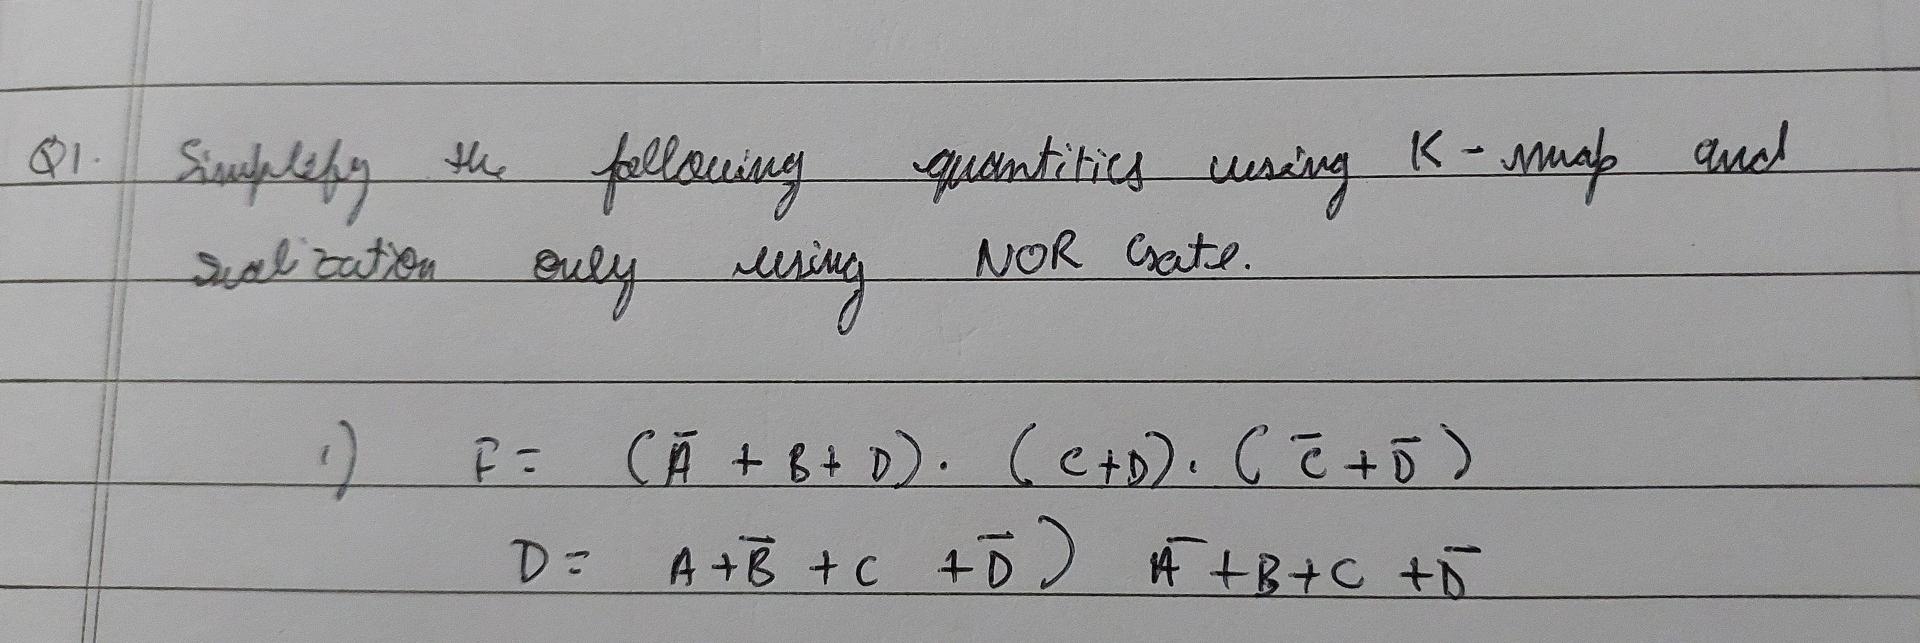 Q1. Simplify the following quantities using K-map and
realization only using NOR Gate.
1) F = (Ā + B + D). (C+D). (C̄ + D̄)
D = A + B̄ + C + D̄) Ā + B + C + D̄